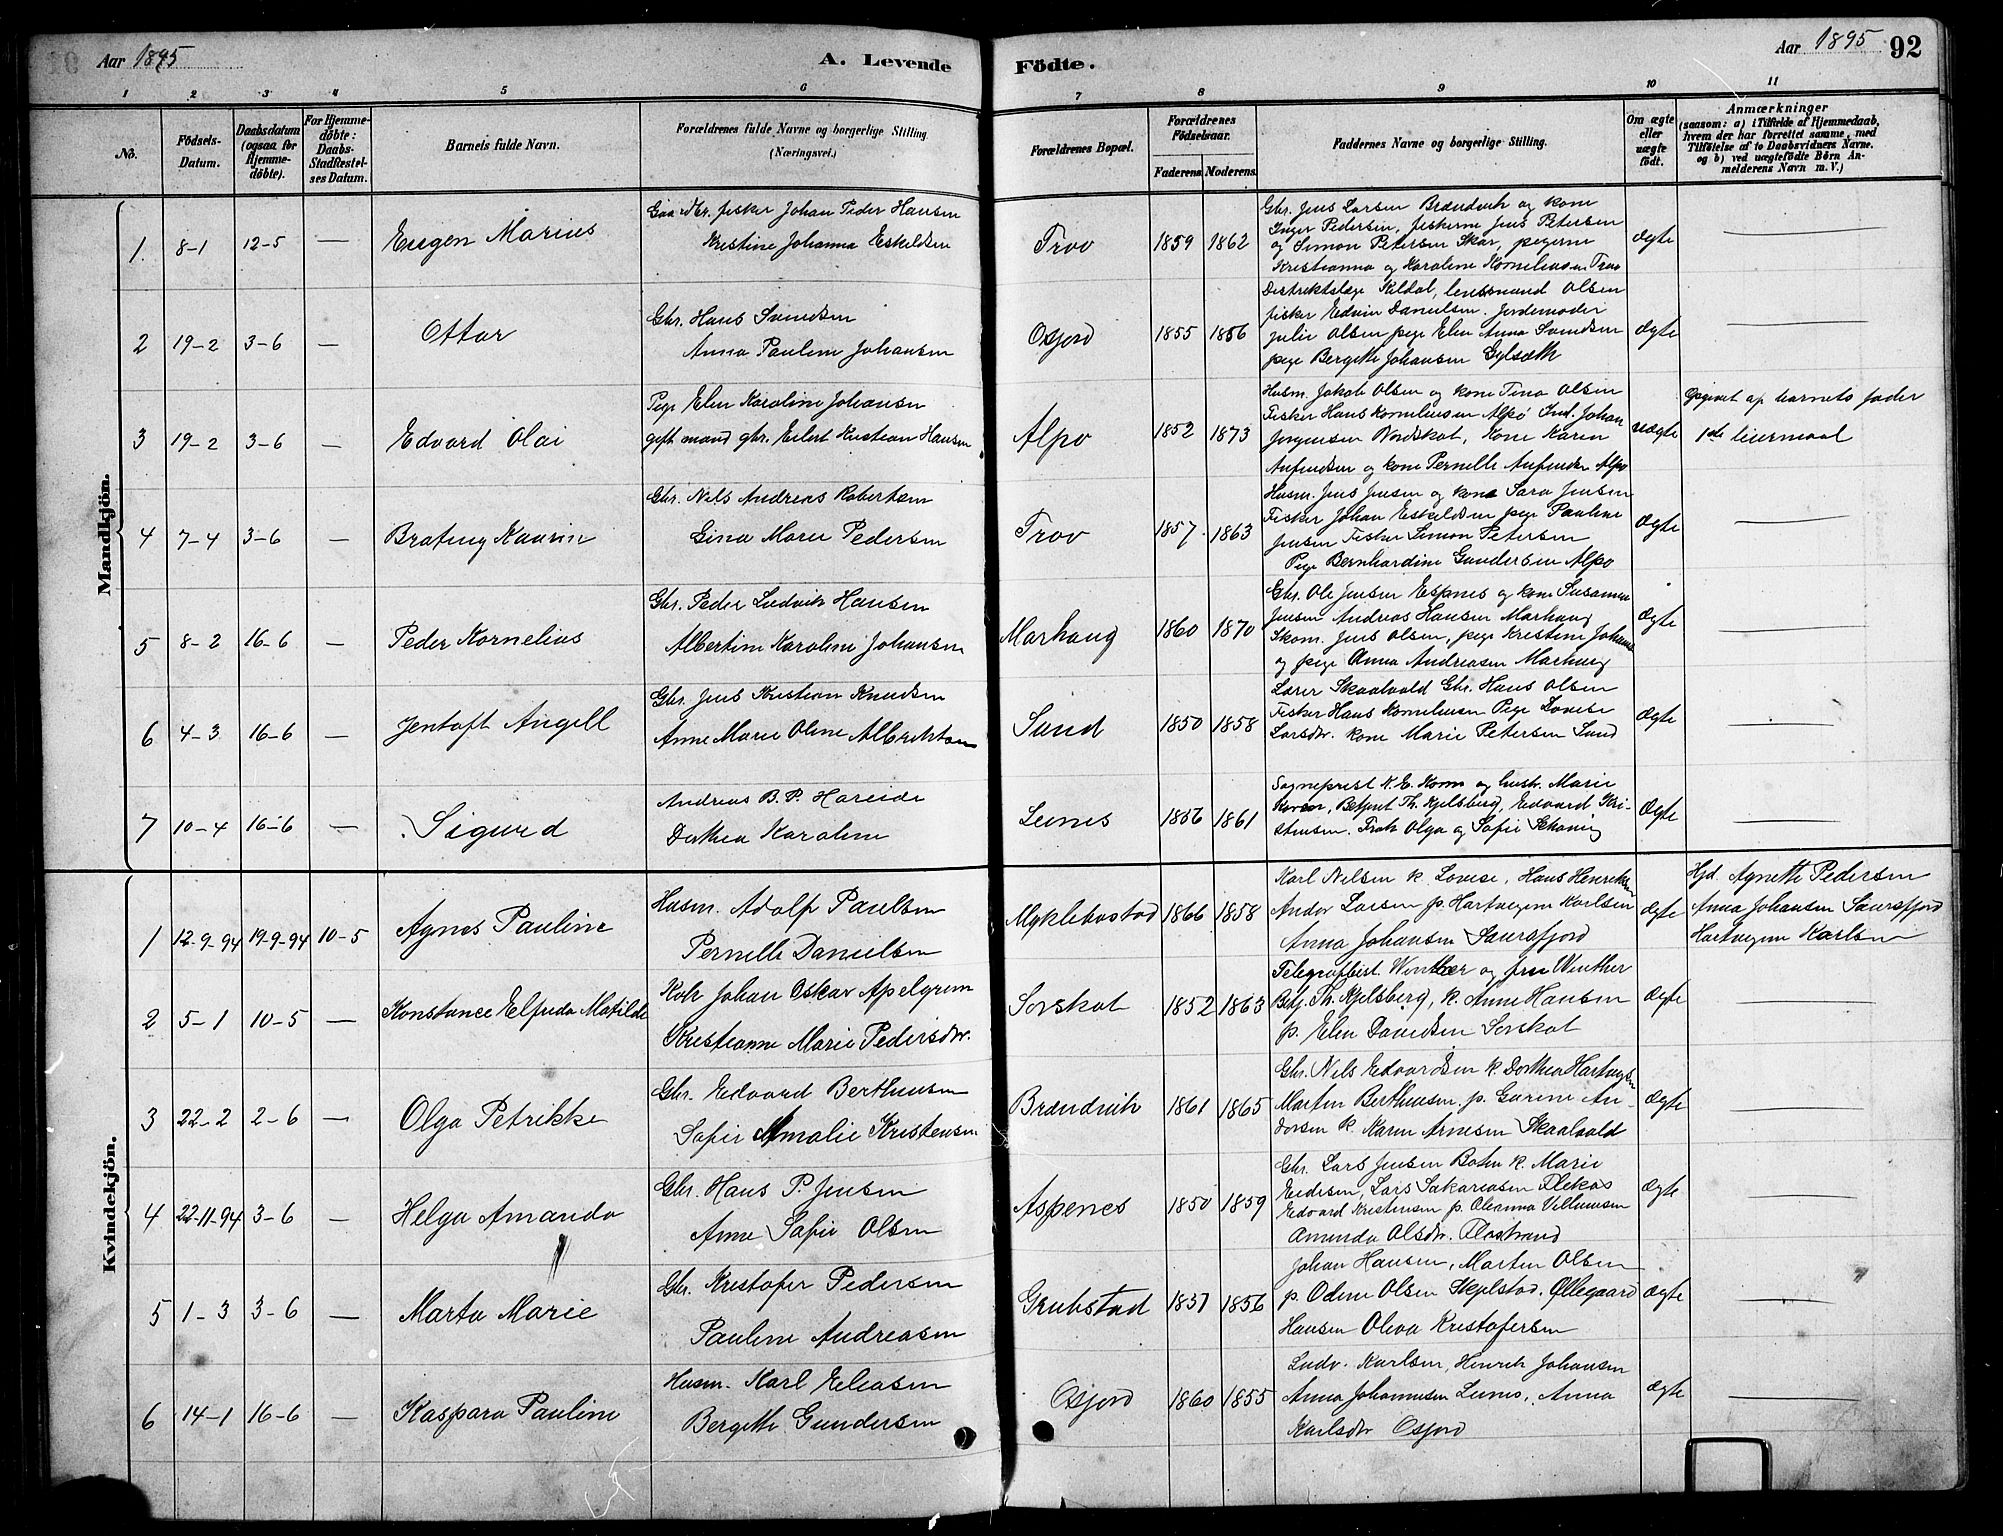 Aar 1895
A. Levende
Fødte.
Aar 1895 92
1 2 3 4 5 6 7 8 9 10 11
No.
Fødsels-
Datum.
Daabsdatum
(ogsaa for
Hjemme-
døbte).
For Hjemme-
døbte:
Daabs-
Stadfæstel-
ses Datum.
Barnets fulde Navn.
Forældrenes fulde Navne og borgerlige Stilling.
(Næringsvei.)
Forældrenes Bopæl.
Forældrenes
Fødselsaar.
Faderens Moderens.
Faddernes Navne og borgerlige Stilling.
Om ægte
eller
uægte
født.
Anmærkninger
(saasom: a) i Tilfælde af Hjemmedaab,
hvem der har forrettet samme, med
Tilføielse af to Daabsvidners Navne.
og b) ved uægtefødte Børn An-
melderens Navn m. V.)
Mandkjön.
1. 8-1 12-5 — Eugen Marius
Gaardbr. fisker Johan Peder Hansen
Kristine Johanna Eskeldsen
Trov 1859 1862
Gbr. Jens Larsen Brændvik og kone
Inger Pedersen, fiskerne Jens Petersen
og Simon Petersen Skar, pigerne
Kristianna og Karoline Korneliusen Trov
Ægte —
2 19-2 3-6 — Ottar
Gbr. Hans Svendsen
Anna Pauline Johansen
Osfjord 1855 1856
Distriktslæge Kildal, lensmand Olsen
fisker Edvin Danielsen. Jordemoder
Julie Olsen pige Elen Anna Svendsen
pige Bergitte Johansen Gylsæth
Ægte —
3 19-2 3-6 — Edvard Olai
Pige Elen Karoline Johansen
gift mand gbr. Eilert Kristian Hansen
Alpø 1852 1873
Husm. Jakob Olsen og kone Tina Olsen
Fisker Hans Korneliusen Alpø Ind. Johan
Jørgensen Nordskot, Kone Karen
Anfindsen og kone Pernelle Anfindsen Alpø
uægte
Opgivet af barnets fader
1ste leiermaal
4 7-4 3-6 — Brating Kaurin
Gbr. Nils Andreas Robertsen
Gina Marie Pedersen
Trov 1857. 1863
Husm. Jens Jensen og kone Sara Jensen
Fisker Johan Eskeldsen pige Pauline
Jensen Fisker Simon Petersen
Pige Bernhardine Gundersen Alpø
Ægte —
5 8-2 16-6 — Peder Kornelius
Gbr. Peder Ludvik Hansen
Albertine Karoline Johansen
Marhaug 1860 1870
Gbr. Ole Jensen Espnes og kone Susanna
Jensen Andreas Hansen Marhaug
Skom. Jens Olsen, pige Kristine Johanse
og pige Anna Andreasen Marhaug
Ægte —
6 4-3 16-6 — Jentoft Angell
Gbr. Jens Kristian Knudsen
Anne Marie Oline Albriktsen
Sund 1850 1858
Lærer Skaalvold Gbr. Hans Olsen
Fisker Hans Korneliusen Pige Lovise
Larsdtr. kone Marie Petersen Sund
Ægte —
7 10-4 16-6 — Sigurd
Andreas B. P. Hareide
Dorthea Karoline
Leines 1856 1861
Sogneprest K. E. Korn og hustr. Marie
Betjent Th. Kjelsberg, Edvard Kri-
stensen. Frøk. Olga og Sofie Schøning
Ægte —
Kvindekjön.
1 12-9-94 19-9-94 10-5 Agnes Pauline
Husm. Adolf Paulsen
Pernelle Danielsen
Myklebostad 1866 1858
Karl Nilsen k. Lovise, Hans Henriksen
Andor Larsen p. Hartvigine Karlsen
Anna Johansen Saursfjord
Ægte
Hjd. Agnette Pedersen
Anna Johansen Saursfjord
Hartvigine Karlsen
2 5-1 10-5 — Konstance Elfrida Matilde
Johan Oskar Apelgren
Kristianne Marie Pedersdtr.
Sørskot 1852 1863
Telegrafbest. Winther og fru Winther
Betj. Th. Kjelsberg, k. Anne Hansen
p. Elen Davidsen Sørskot
Ægte —
3 22-2 2-6 — Olga Petrikke
Gbr. Edvard Berthusen
Sofie Amalie Kristensen
Brændvik 1861 1865
Gbr. Nils Edvardsen k. Dorthea Hartvigsen
Marten Berthusen, p. Gurine An-
dorsen k. Karen Arnesen Skaalvold
Ægte —
4 22-11-94 3-6 — Helga Amanda
Gbr. Hans P. Jensen
Anne Sofie Olsen
Aspenes 1850 1859
Gbr. Lars Jensen Boten k. Marie
Lars Sakariasen Flekas
Edvard Kristensen p. Oleanna Villumsen
Amanda Olsdtr. Flostrand
Ægte —
5 1-3 3-6 — Marta Marie
Gbr. Kristofer Pedersen
Pauline Andreasen
Grubstad 1857 1856
Johan Hansen, Morten Olsen
p. Odine Olsen Skjelstad. Øllegaard
Hansen Oliva Kristofersen
Ægte —
6 14-1 16-6 — Kaspara Pauline
Husm. Karl Eleasen
Bergitte Gundersen
Osfjord 1860 1855
Ludv. Karlsen, Henrik Johansen
Anna Johannesen Leines, Anna
Karlsdtr Osfjord
Ægte —